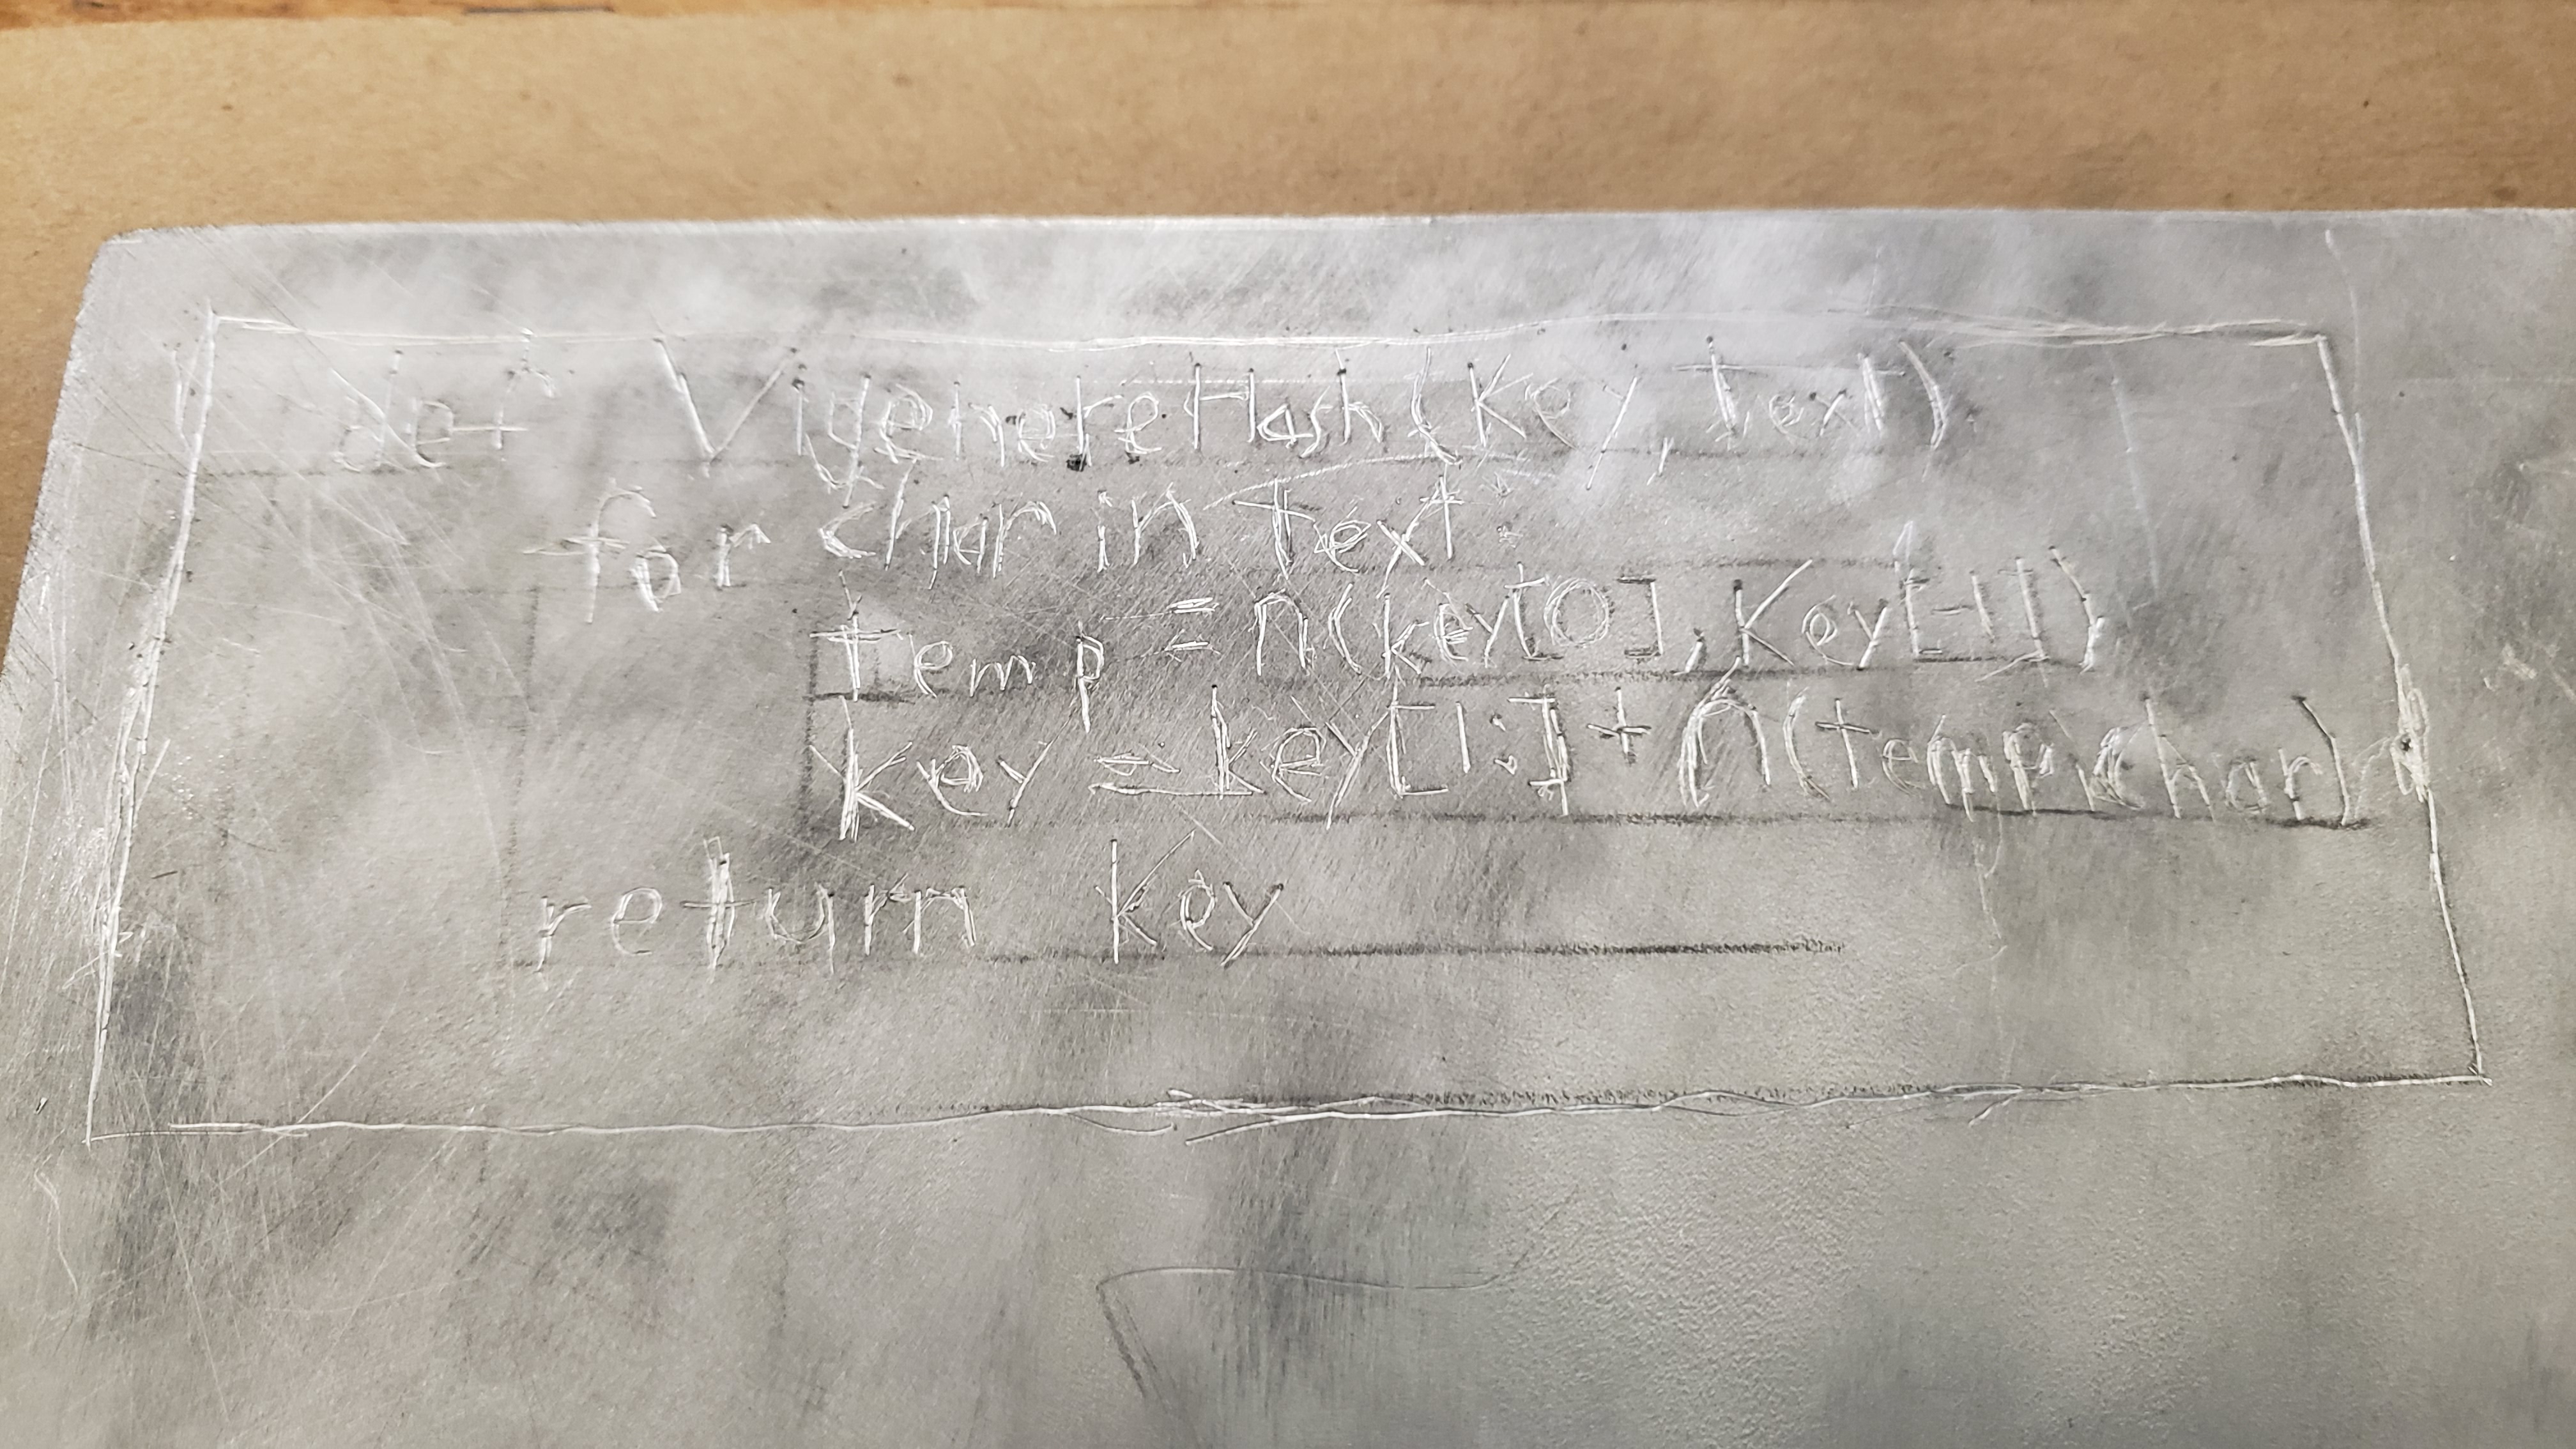 def VigenereHash(key, text)
for char in text:
temp = n(key[0], key[-1])
key = key[1:] + n(temp, char)
return key